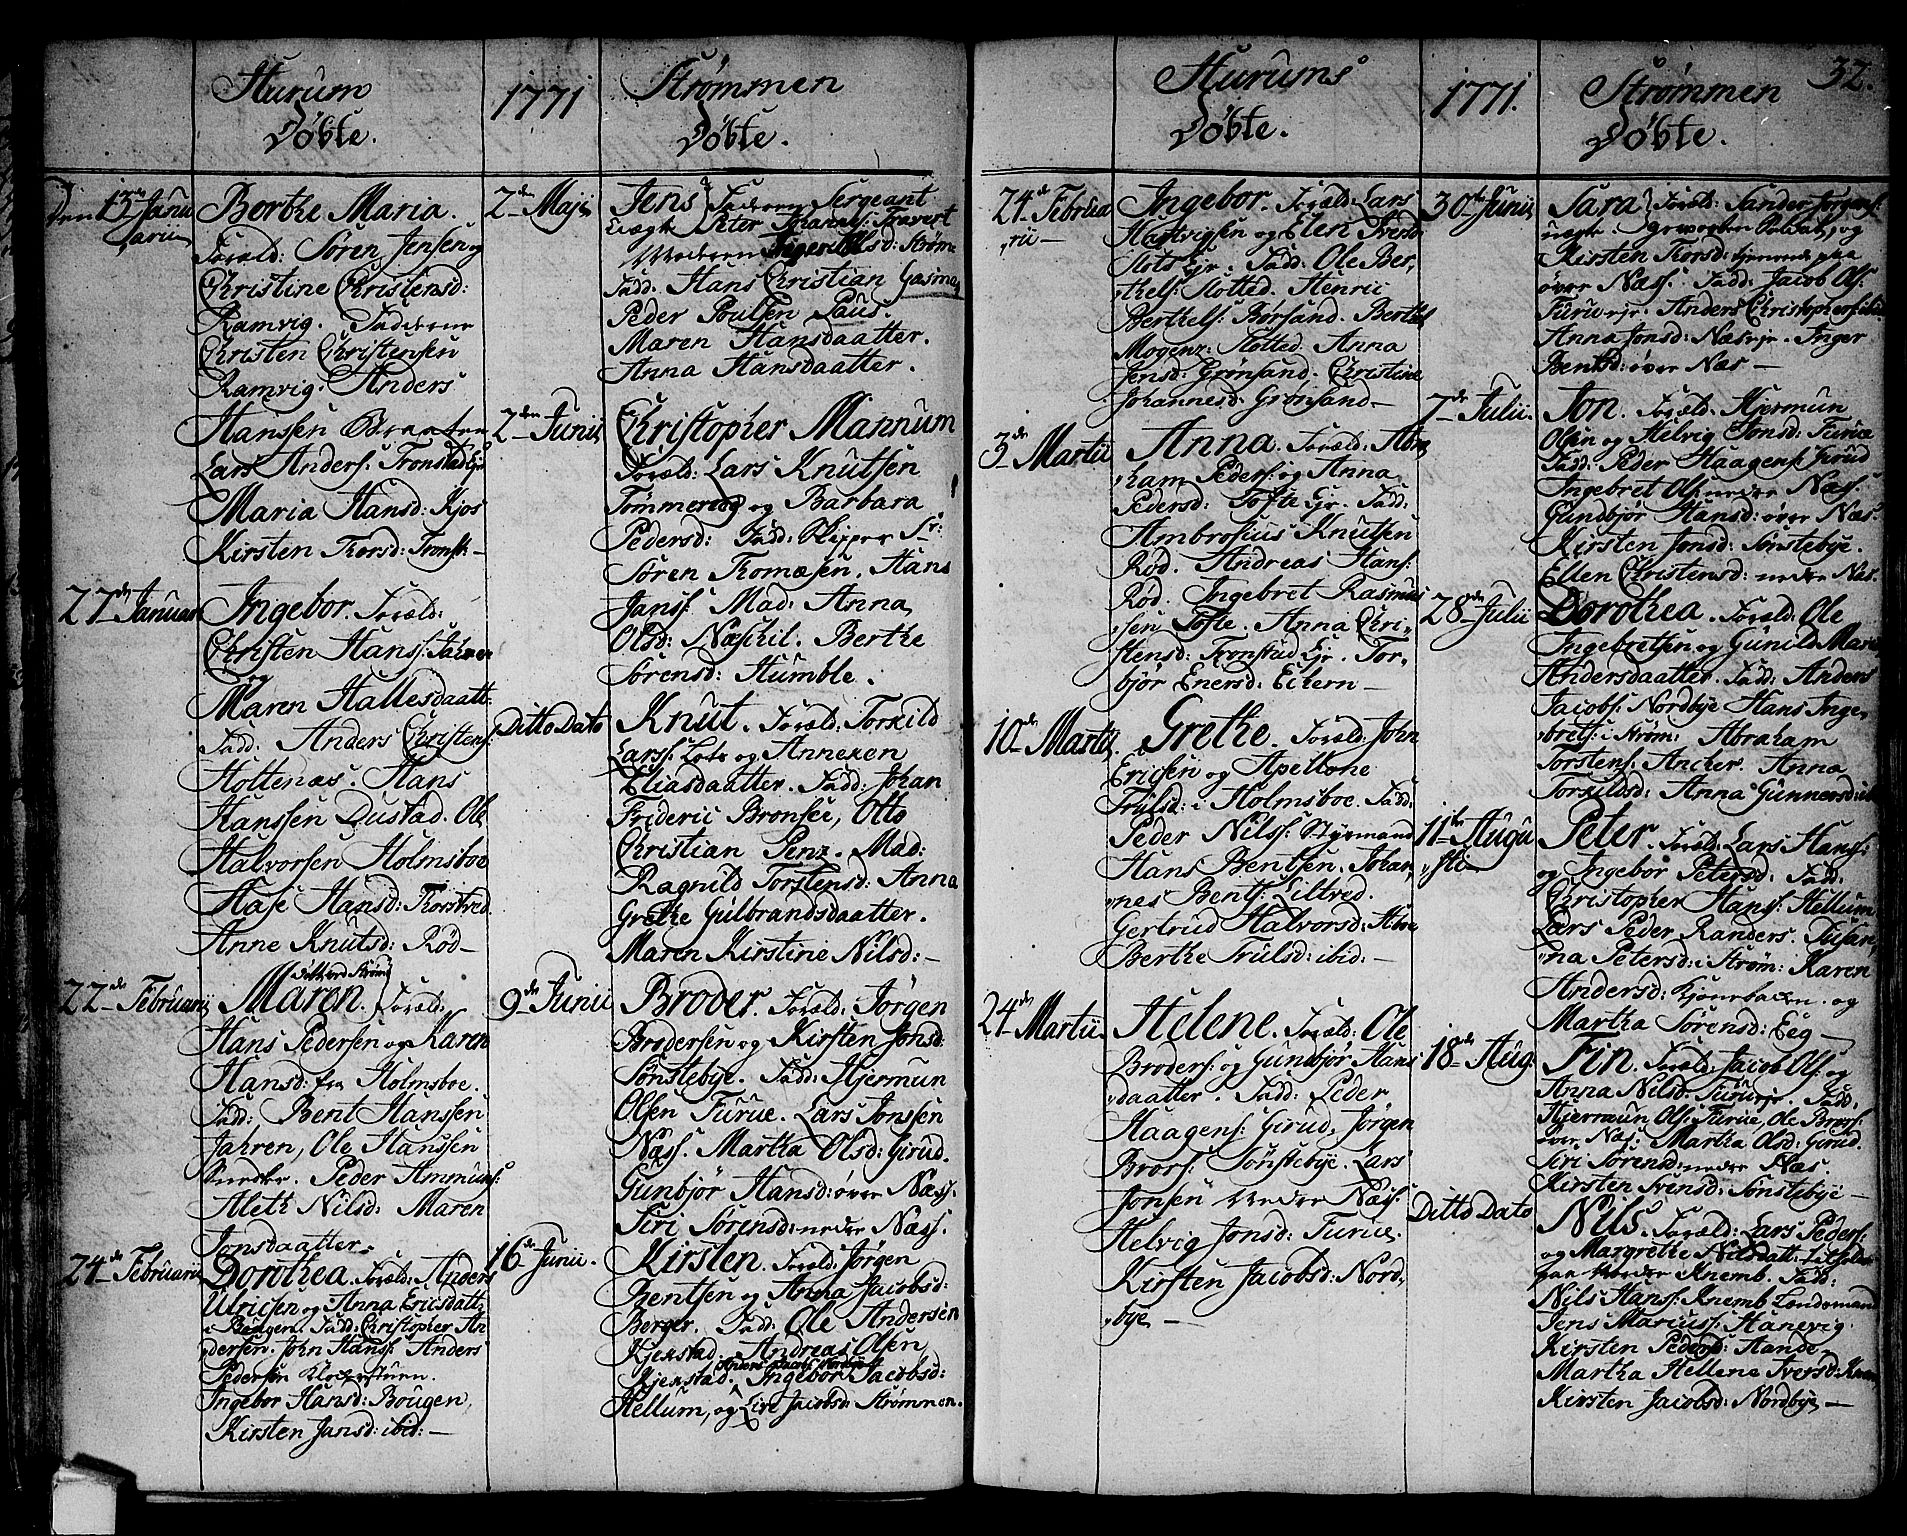 Hurum
Døbte.
den 13de Janu
arii
Berthe Maria.
Foræld: Sören Jensen og
Christine Christensd:
Ramvig. Fadderne
Christen Christensen
Ramvig. Anders
Hanssen Braaten
Lars Anders: Tronstad Ejr
Maria Hansd: Kjos
Kirsten Torsd: Tronst:
27de Januar
Ingebor. Foræld:
Christen Hanss: Jahren
og
Maren Hallesdaatt:
Fadd. Anders Christens:
Holtenæs. Hans
Hanssen Dustad. Ole
Halvorsen Holmsboe
Hase Hansd: Torstved
Anne Knutsd: Rød
22de Februarii
Maren. Foræld:
Hans Pedersen og Karen
Hansd: fra Holmsboe.
Fadd: Bent Hanssen
Jahren, Ole Hanssen
Peder Ammuns:
Aleth Nilsd: Maren
Jonsdaatter.
24de Februarii
Dorothea. Foræld: Anders
Ulricsen og Anna Ericsdatt:
i Bougen. Fadd: Christopher An
dersen. John Hans: Anders
Pedersen Klokkerstuen.
Ingebor Hansd: Bougen,
Kirsten Jansd: ibid:
1771
Strømmen
Døbte.
2den Maji
Jens Faderen Sergeant
Uægte Peter
Moderen Strøm
Fadd: Hans Christian Gasman
Peder Poulsen Paus.
Maren Hansdaatter.
Anna Hansdaatter.
2den Junii
Christopher Mannum
Foræld: Lars Knutsen
Tømmeraas og Barbara
Pedersd: Fadd: Skipper Sr:
Sören Thomæsen. Hans
Janss: Mad: Anna
Olsd: Næschil. Berthe
Sörensd: Humble.
Ditto Dato
Knut. Foræld: Torkild
Larss: Lots og Annexen
Eliasdaatter. Fadd: Johan
Frideric Bronsei, Otto
Christian Penz. Mad:
Ragnild Torstensd: Anna
Grethe Gulbrandsdaatter.
Maren Kirstine Nilsd:
9de Junii
Broder. Foræld: Jørgen
Brodersen og Kirsten Jonsd:
Sønstebye. Fadd: Hjermun
Olsen Furue. Lars Jonssen
Næss. Martha Olsd: Girud.
Gunbjör Hansd: över Næss.
Siri Sörensd: nedre Næss.
16de Junii.
Kirsten. Foræld: Jørgen
Bentsen og Anna Jacobsd:
Berger. Fadd: Ole Andersen
Kjekstad. Andreas Olsen
Anders Jacobs: Nordbye
Kjekstad. Ingebor Jacobsd:
Hellum, og Live Jacobsd: Strømmen.
Hurums
Døbte.
24de Februa
rii
Ingebor. Foræld: Lars
Hartvigsen og Elen Iversd:
Slots Ejr. Fadd: Ole Ber,
thels: Slotted. Henric
Berthels: Børsand. Berthe
Mogenz: Slotted. Anna
Jensd: Grønsand. Christine
Johannesd: Grønsand
3de Martii
Anna. Foræld: Abra
ham Peders: og Anna
Pedersd: Tofte Ejr. Fadd:
Ambrosius Knutsen
Rød. Andreas Hans:
Rød. Ingebret Rasmus
sen Tofte. Anna Chri,
stensd: Tronstud Ejr. Tor,
bjør Enersd: Ekern
10de Martii
Grethe. Foræld: John
Ericsen og Apellone
Trulsd: i Holmsboe. Fadd:
Peder Nilss: Styrmand
Hans Bentsen. Johan
nes Bents: Liltved.
Gertrud Halvorsd:
Berthe Trulsd: ibid:
24de Martii
Helene. Foræld: Ole
Broders: og Gunbjør Hans
daatter. Fadd: Peder
Haagens: Girud, Jørgen
Brors: Sønstebye. Lars
Jonsen nedre Næss:
Helvig Jonsd: Furue.
Kirsten Jacobsd: Nord,
bye
1771.
Strømmen 32.
Døbte.
30te Junii
Sara Foræld: Sander Jørgens:
uægte Soldat, og
Kirsten Torsd: hjemme paa
øvre Næss. Fadd: Jacob Ols:
Furu ejr. Anders Christophers: ibid:
Anna Jonsd: Næs ejr. Inger
Bentsd: øvre Næs
7de Julii
Jon. Foræld: Hjermun
Olsen og Helvig Jonsd: Furue
Fadd: Peder Haagens: Girud
Ingebret Ols: nedre Næss:
Gundbjør Hansd: øvre Næs.
Kirsten Jonsd: Sønstebye.
Ellen Christensd: nedre Næs.
28de Julii
Dorothea. Foræld: Ole
Ingebretsen og Gunild Marie
Andersdaatter. Fadd: Anders
Jacobs: Nordbye Hans Inge,
brets: i Strøm: Abraham
Torstens: Ancher. Anna
Torkildsd: Anna Gunnersd: ibid
11te Augu
sti
Peter. Foræld: Lars Hans:
og Ingebor Petersd: Fadd:
Christopher Hans: Hellum
Lars Peder Randers. Susan,
na Petersd: i Strøm: Karen
Andersd: og
Martha Sørensd: Eeg
18de Aug:
Fin. Foræld: Jacob Ols: og
Anna Nilsd: Furu ejr. Fadd:
Hjermun Ols: Furue, Ole Brors:
øvre Næs: Martha Olsd: Girud.
Siri Sørensd: nedre Næs.
Kirsten Svensd: Sønstebye
Ditto Dato
Nils. Foræld: Lars Peders:
og Margrethe Nilsdatt:
paa nedre Knemb. Fadd:
Nils Hans: Knemb Lendsmand
Jens Marius: Hanevig.
Kirsten Pedersd: Sande.
Martha Hellene Iversd:
Kirsten Jacobsd: Nordbye